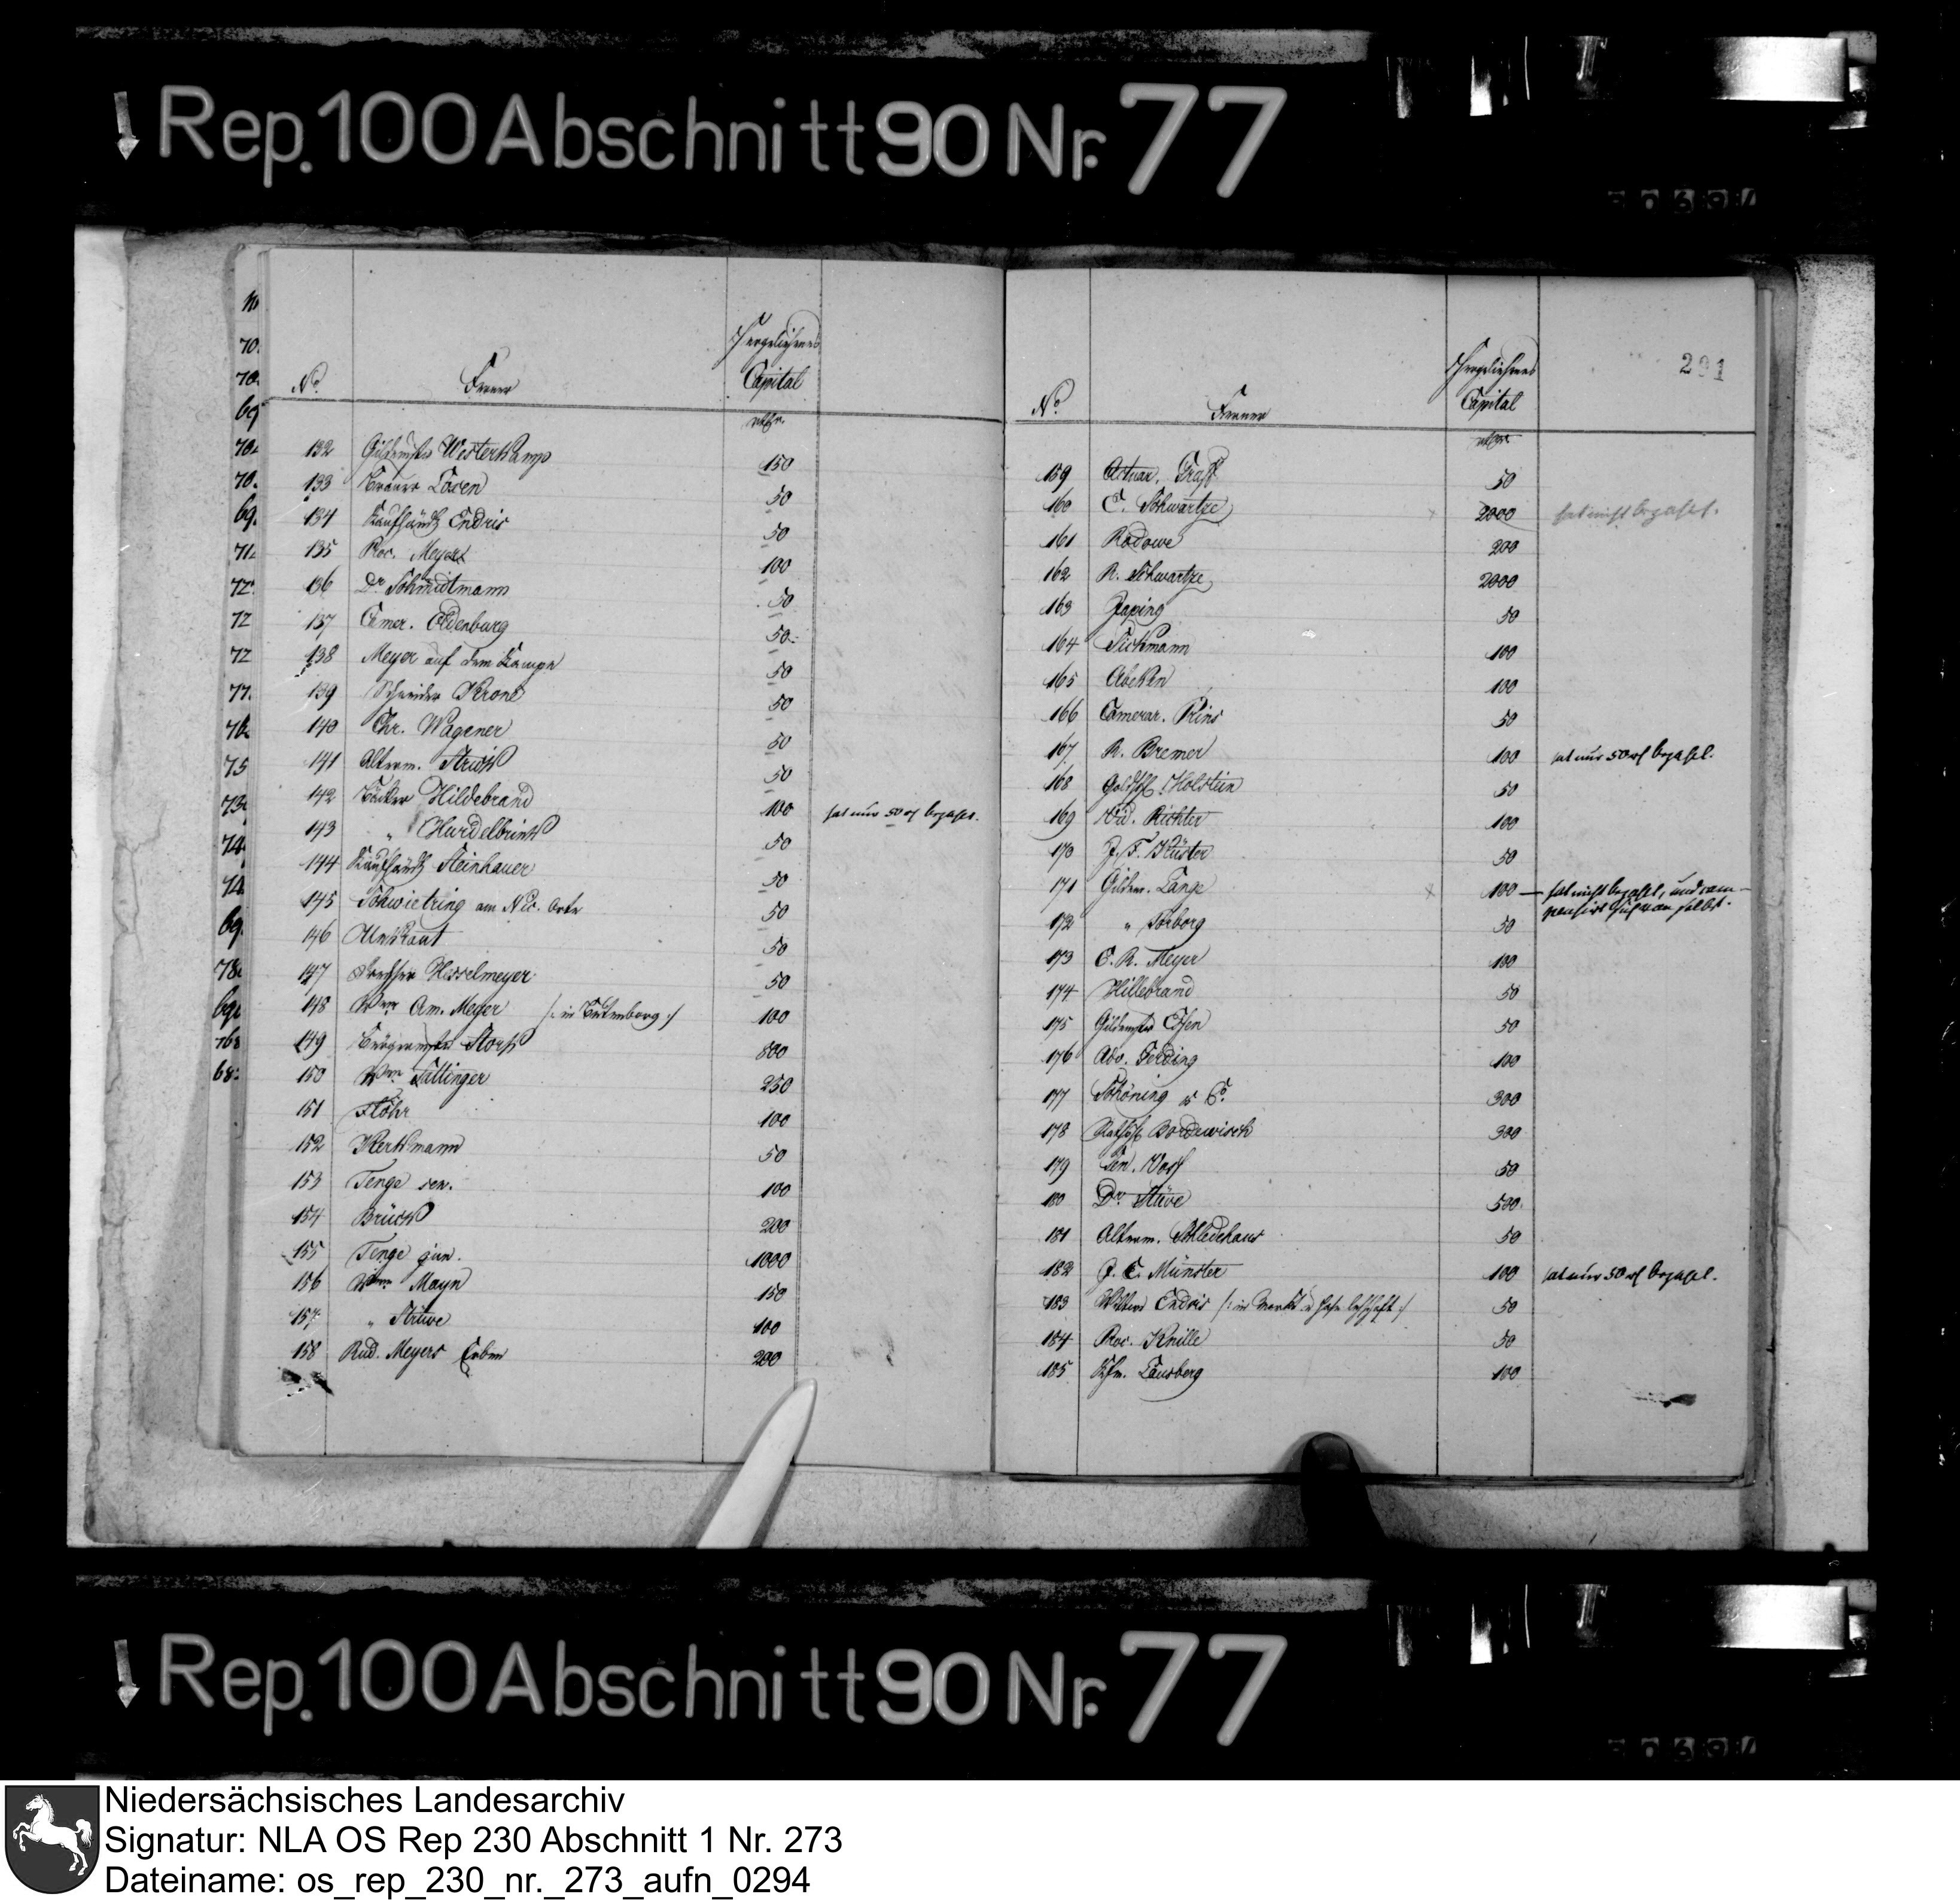 Rep. 100 Abschnitt 90 Nr. 77
N.
70.
70.
69
70.
70.
69.
71.
72.
72
72
77.
76.
75
73.
74.
74.
69.
78.
69.
76.
68.
No. Ferner Hergeliehenes
Capital
rthr.
132 Gildemstr Westerkamp 150
133 Brauer Loxen 50
134 Kaufhändl. Endris 50
135 Proc. Meyer 100
136 Dr. Schmidtmann 50
137 Cämer. Oldenburg 50
138 Meyer auf dem Kampe 50
139 Schneider Krone 50
140 Chr. Wagener 50
141 Alterm. Struck 50
142 Bäcker Hildebrand 100 hat nur 50 rt bezahlt.
143 " Hurdelbrink 50
144 Kaufhändl. Steinhauer 50
145 Schwietring am Nic. Orte 50
146 50
147 Hesselmeyer 50
148 Wwe. Am. Meyer /: in :/ 100
149 Bürgermstr Stork 800
150 Wwe. Tallinger 250
151 Flöhr 100
152 Kerkmann 50
153 Tenge sen. 100
154 Brück 200
155 Tenge jun. 1000
156 Wwe Mayn 150
157 " Strüve 100
158 Rud. Meyers Erben 200
291
No. Ferner Hergeliehenes
Capital
rthr.
159 Actuar. Graff 50
160 C. Schwartze 2000 hat nicht bezahlt.
161 Rodowe 200
162 R. Schwartze 2000
163 Japing 50
164 Sickmann 100
165 Abeken 100
166 Camerar. Prins 50
167 R. Bremer 100 hat nur 50 rt bezahlt.
168 Goldsch. Holstein 50
169 Vid. Richter 100
170 J. F. Küster 50
171 Gildem. Lange 100 — hat nicht bezahlt, und com-
pensirt selbst.
172 " Torborg 50
173 C. R. Meyer 100
174 Hillebrand 50
175 Gildemstr 50
176 Adv. Gerding 100
177 Schöning & C. 300
178 Rathsh. Bordewisch 300
179 Sen. Voss 50
180 Dr. Stüve 500
181 Alterm. Schledehaus 50
182 J. C. Münster 100 hat nur 50 rt bezahlt.
183 Wittwe Endris /: in :/ 50
184 Proc. Knille 50
185 Kfm. Lausberg 100
Rep. 100 Abschnitt 90 Nr. 77
Niedersächsisches Landesarchiv
Signatur: NLA OS Rep 230 Abschnitt 1 Nr. 273
Dateiname: os_rep_230_nr._273_aufn_0294